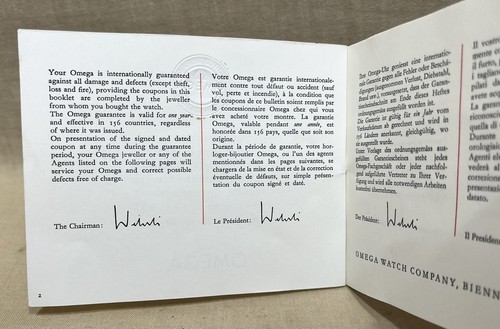 Your Omega is internationally guaranteed
against all damage and defects (except theft,
loss and fire), providing the coupons in this
booklet are completed by the jeweller
from whom you bought the watch.
The Omega guarantee is valid for one year
and effective in 156 countries, regardless
of where it was issued.
On presentation of the signed and dated
coupon at any time during the guarantee
period, your Omega jeweller or any of the
Agents listed on the following pages will
service your Omega and correct possible
defects free of charge.
The Chairman:
2
Votre Omega est garantie internationale-
ment contre tout défaut ou accident (sauf
vol, perte et incendie), à la condition que
les coupons de ce bulletin soient remplis par
le concessionnaire Omega chez qui vous
avez acheté votre montre. La garantie
Omega, valable pendant une année, est
honorée dans 156 pays, quelle que soit son
origine.
Durant la période de garantie, votre hor-
loger-bijoutier Omega, ou l'un des agents
mentionnés dans les pages suivantes, se
chargera de la mise en état et de la correction
éventuelle de défauts, sur simple présenta-
tion du coupon signé et daté.
Le Président:
Ihre Omega-Uhr geniesst eine internatio-
nale Garantie gegen alle Fehler oder Beschä-
digungen (ausgenommen Verlust, Diebstahl,
Brand usw.), vorausgesetzt, dass der Garan-
tiescheinabschnitt am Ende dieses Heftes
ordnungsgemäss ausgefüllt ist.
Die Garantie ist gültig für ein Jahr vom
Verkaufsdatum ab gerechnet und wird in
156 Ländern anerkannt, gleichgültig, wo
sie ausgestellt wurde.
Unter Vorlage des ordnungsgemäss ausge-
füllten Garantiescheines steht jedes
Omega-Fachgeschäft oder jeder nachfol-
gend aufgeführte Vertreter zu Ihrer Ver-
fügung und wird alle notwendigen Arbeiten
kostenlos übernehmen.
Der Präsident:
OMEGA WATCH COMPANY, BIENN
Il vostro
il furto,
Durante
Il Presid